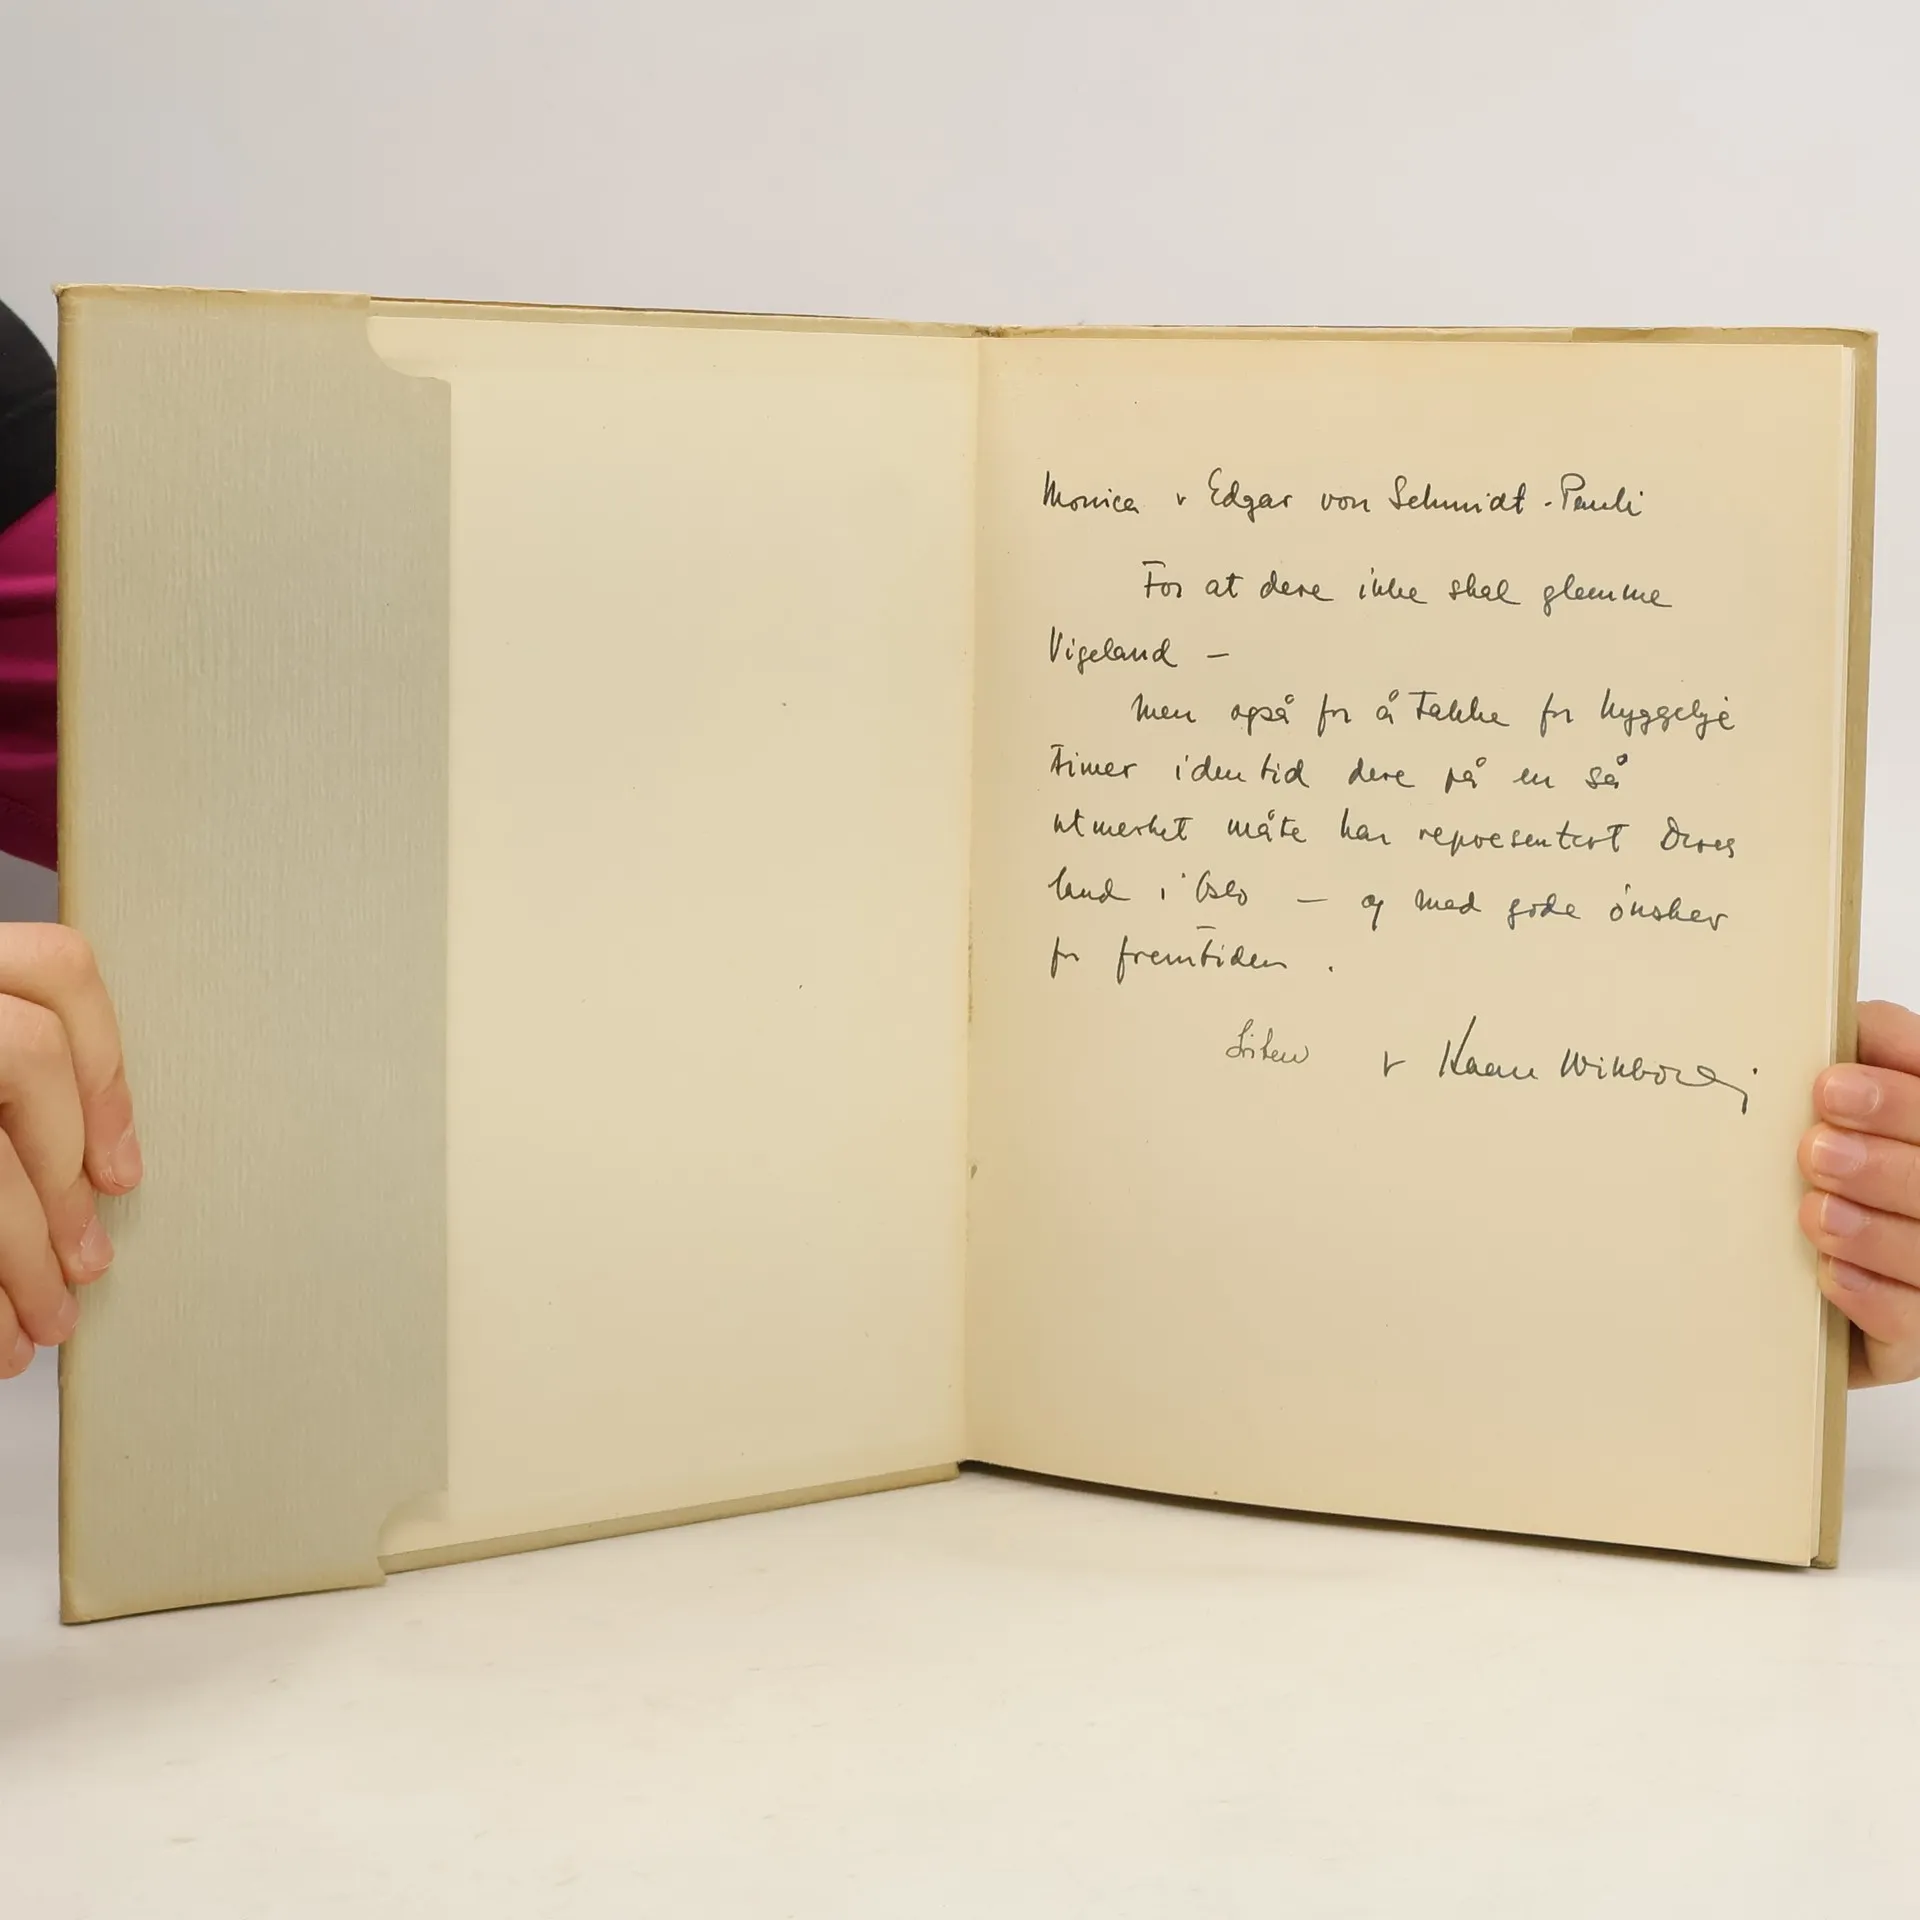 Monica & Edgar von Schmidt-Pauli
For at dere ikke skal glemme
Vigeland –
Men også for å takke for hyggelije
timer i den tid dere på en så
utmerket måte har representert Deres
land i Oslo – og med gode ønsker
for fremtiden.
& Kaare